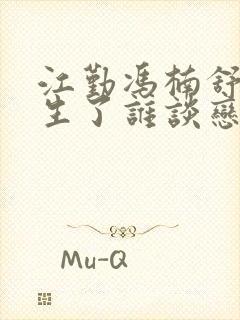 江勤馮楠舒
生了誰談戀
Mu-Q